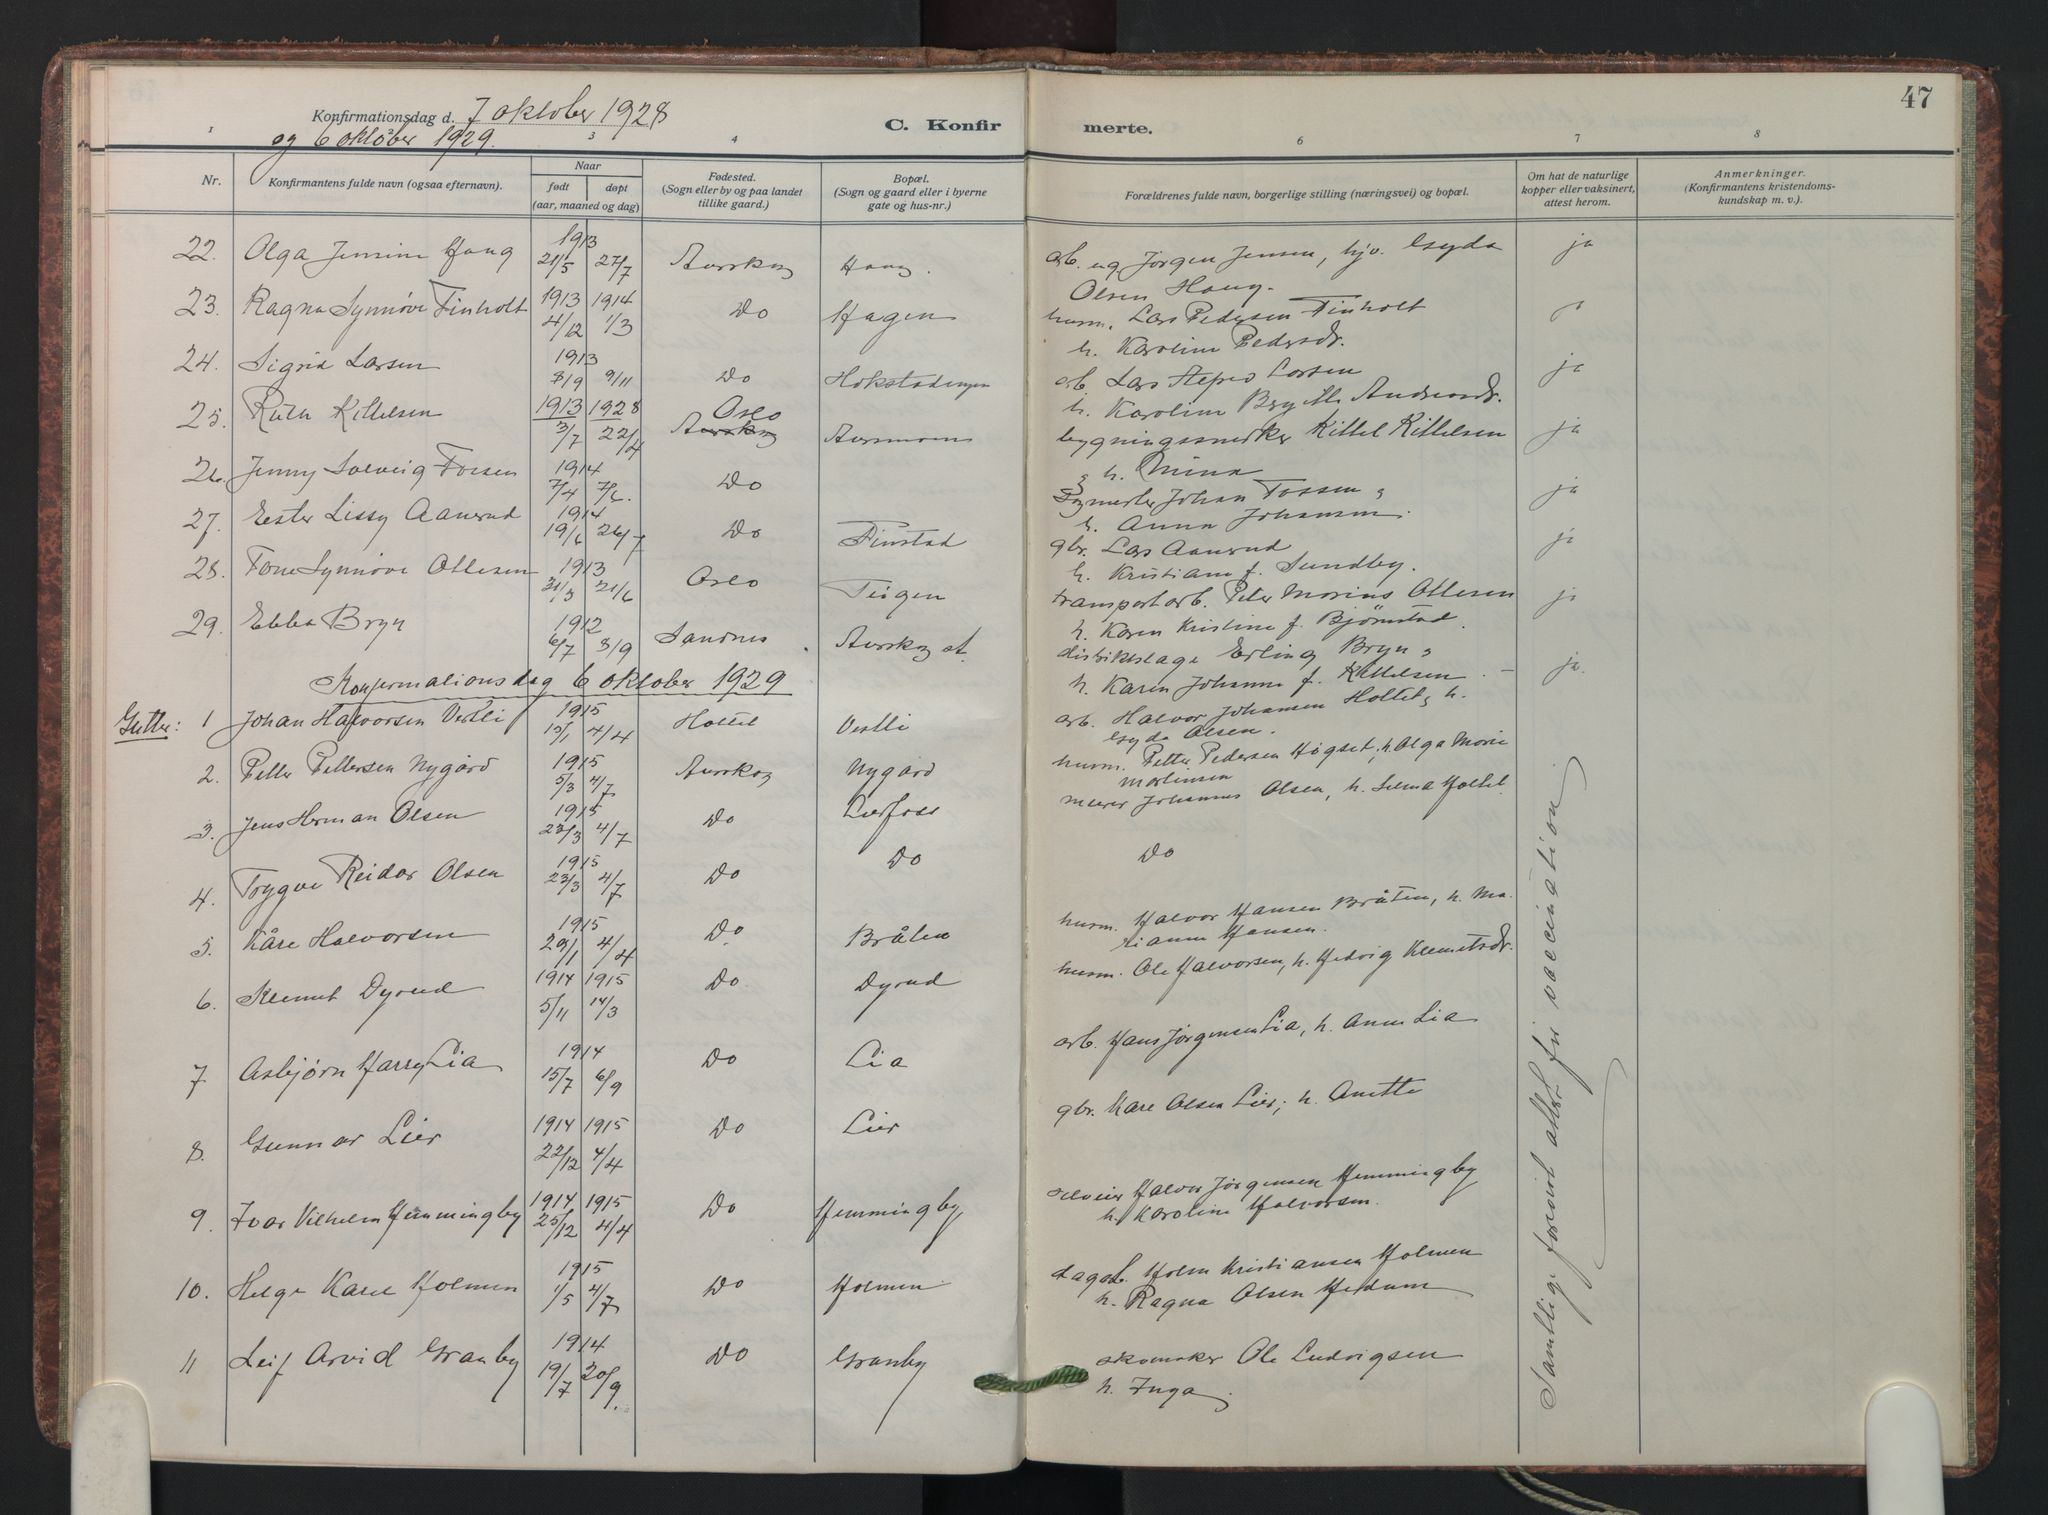 47
Konfirmationsdag d. 7 oktober 1928
og 6 oktober 1929.
C. Konfirmerte.
1 3 4 6 7 8
Nr. Konfirmantens fulde navn (ogsaa efternavn). Naar født døpt (aar, maaned og dag) Fødested. (Sogn eller by og paa landet tillike gaard.) Bopæl. (Sogn og gaard eller i byerne gate og hus-nr.) Forældrenes fulde navn, borgerlige stilling (næringsvei) og bopæl. Om hat de naturlige kopper eller vaksinert, attest herom. Anmerkninger. (Konfirmantens kristendoms-kundskap m. v.).
22. Olga Jensine Haug 1913 21/5 27/7 Aurskog Haug. arb. ug Jørgen Jensen, hj. Gyda Olsen Haug. ja
23. Ragna Synnøve Finholt 1913 4/12 1914 1/3 Do Hagen husm. Lars Pedersen Finholt h. Karoline Pedersdr.
24. Sigrid Larsen 1913 8/9 9/11 Do Hokstadengen arb Lars Larsen h. Karoline Andersdr. ja
25. Ruth Kittelsen 1913 3/7 1928 22/4 Oslo Aurskog Aursmoen bygningssnedker Kittel Kittelsen & h. Mina ja
26. Jenny Solveig Fossen 1914 7/4 7/6. Do Johan Fossen & h. Anna Johansen. ja
27. Ester Lissy Aanerud 1914 19/6 26/7 Do Finstad gbr. Lars Aanerud h. Kristiane f. Sundby. ja
28. Tone Synnøve Ottesen 1913 31/3 21/6 Oslo Teigen transportarb. Peter Marius Ottesen h. Karen Kristine f. Bjørnstad. ja
29. Ebba Bryn 1912 6/7 8/9 Sandnes Aurskog st. distriktslæge Erling Bryn & h. Karen Johanne f. Kittelsen. ja.
Konfirmationsdag 6 oktober 1929
Gutter: 1 Johan Halvorsen Vestli 1915 15/1 4/4 Holtet Vestli arb. Halvor Johansen Holtet, h. Gyda Olsen.
2. Petter Pettersen Nygård 1915 5/3 4/7 Aurskog Nygård husm. Petter Pedersen Høgset; h. Olga Marie Martinsen
3. Jens Herman Olsen 1915 23/3 4/7 Do Lierfoss murer Johannes Olsen, h. Selma Holtet.
4. Trygve Reidar Olsen 1915 23/3 4/7 Do Do Do
5. Kåre Halvorsen 1915 29/1 4/4 Do Bråten husm. Halvor Hansen Bråten, h. Marianne Hansen.
6. Klemet Dyrud 1914 5/11 1915 14/3 Do Dyrud husm. Ole Halvorsen, h. Hedvig Klemetsdr.
7 Asbjørn Harry Lia 1914 15/7 6/9 Do Lia arb. Hans Jørgensen Lia, h. Anna Lia
8. Gunnar Lier 1914 22/12 1915 4/4 Do Lier gbr. Kåre Olsen Lier; h. Anette
9. Ivar Vilhelm Hemmingby 1914 25/12 1915 4/4 Do Hemmingby selveier Halvor Jørgensen Hemmingby h. Karoline Halvorsen.
10. Helge Karel Holmen 1915 1/5 4/7 Do Holmen dagarb. Holm Kristiansen Holmen h. Ragna Olsen
11 Leif Arvid Granby 1914 19/7 20/9. Do Granby skomaker Ole Ludvigsen h. Inga.
Samtlige forevist attest for vaccination.